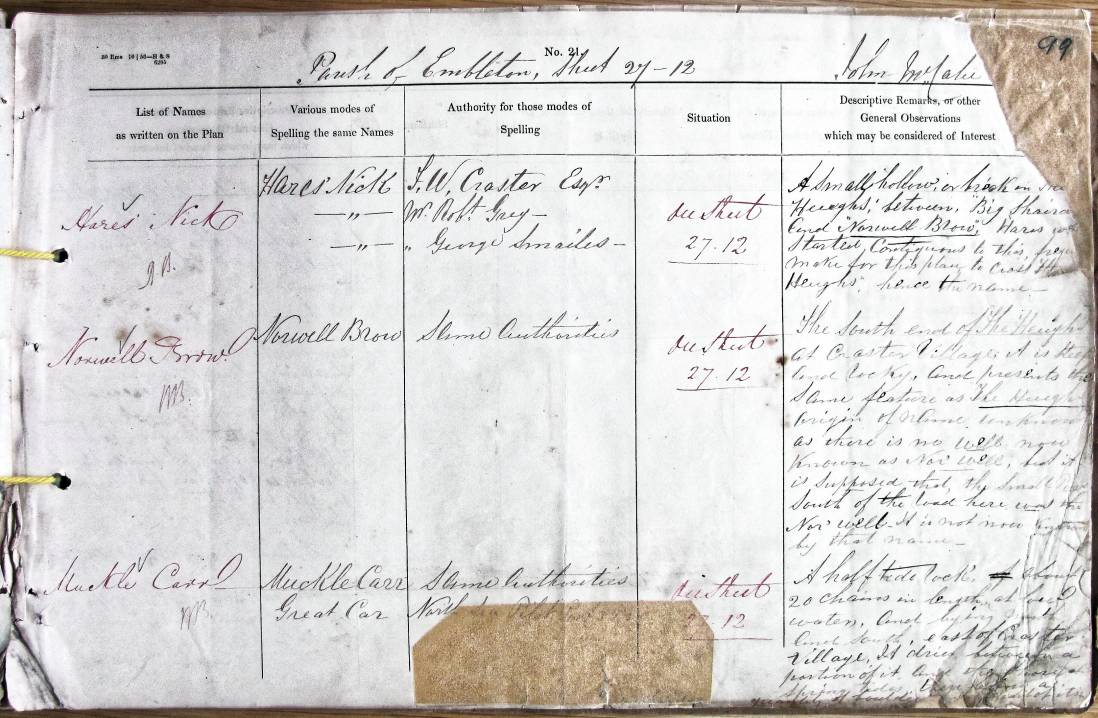 50 Rms 10 | 56—H & S
6205
No. 21.
99
Parish of Embleton, Sheet 27-12
John McCabe
List of Names
as written on the Plan
Various modes of
Spelling the same Names
Authority for those modes of
Spelling
Situation
Descriptive Remarks, or other
General Observations
which may be considered of Interest
Hares' Nick
Hares' Nick
—„—
—„—
F. W. Craster Esqr.
Mr. Robt. Grey —
„ George Smailes —
See Sheet
27.12
A small hollow, or break on the
Heughs, between, "Big Shaird
and "Norwell Brow", Hares
Started Contiguous to this
make for this place to Cross the
Heughs, hence the name —
Norwell Brow
Norwell Brow
Same Authorities
See Sheet
27.12
The South end of The Heughs
at Craster Village, it is Steep
and rocky, and presents the
Same feature as The Heughs
origin of name unknown
as there is no well now
Known as Nor' well, but it
is supposed that, the small
South of the road here was the
Nor' well. It is not now known
by that name —
Muckle Carr
Muckle Carr
Great Car
Same Authorities
North
See Sheet
27.12
A half tide rock, about
20 chains in length, at low
water, and lying north
and South, east of Craster
Village, It dries between a
portion of it, and
Spring